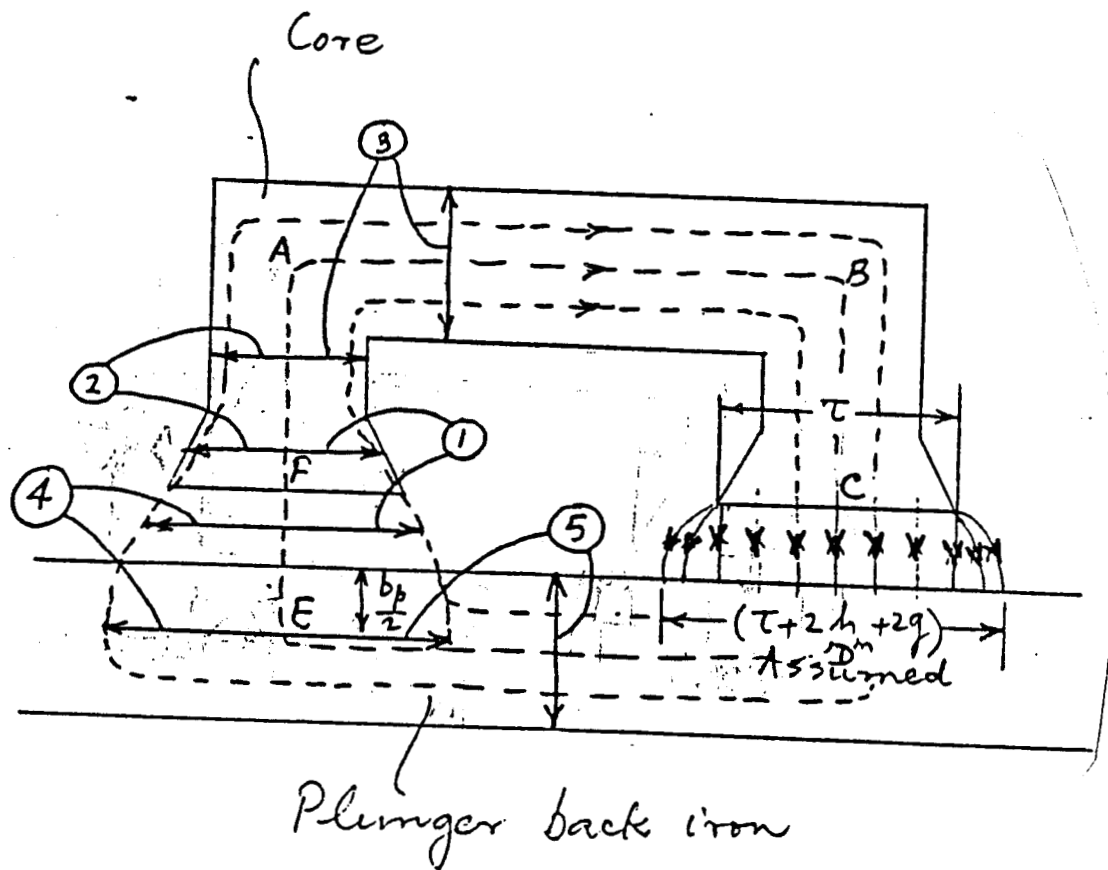 Core
3
A
B
2
τ
1
F
C
4
5
b_p/2
E
(τ+2h+2g)
"D"
Assumed
Plunger back iron